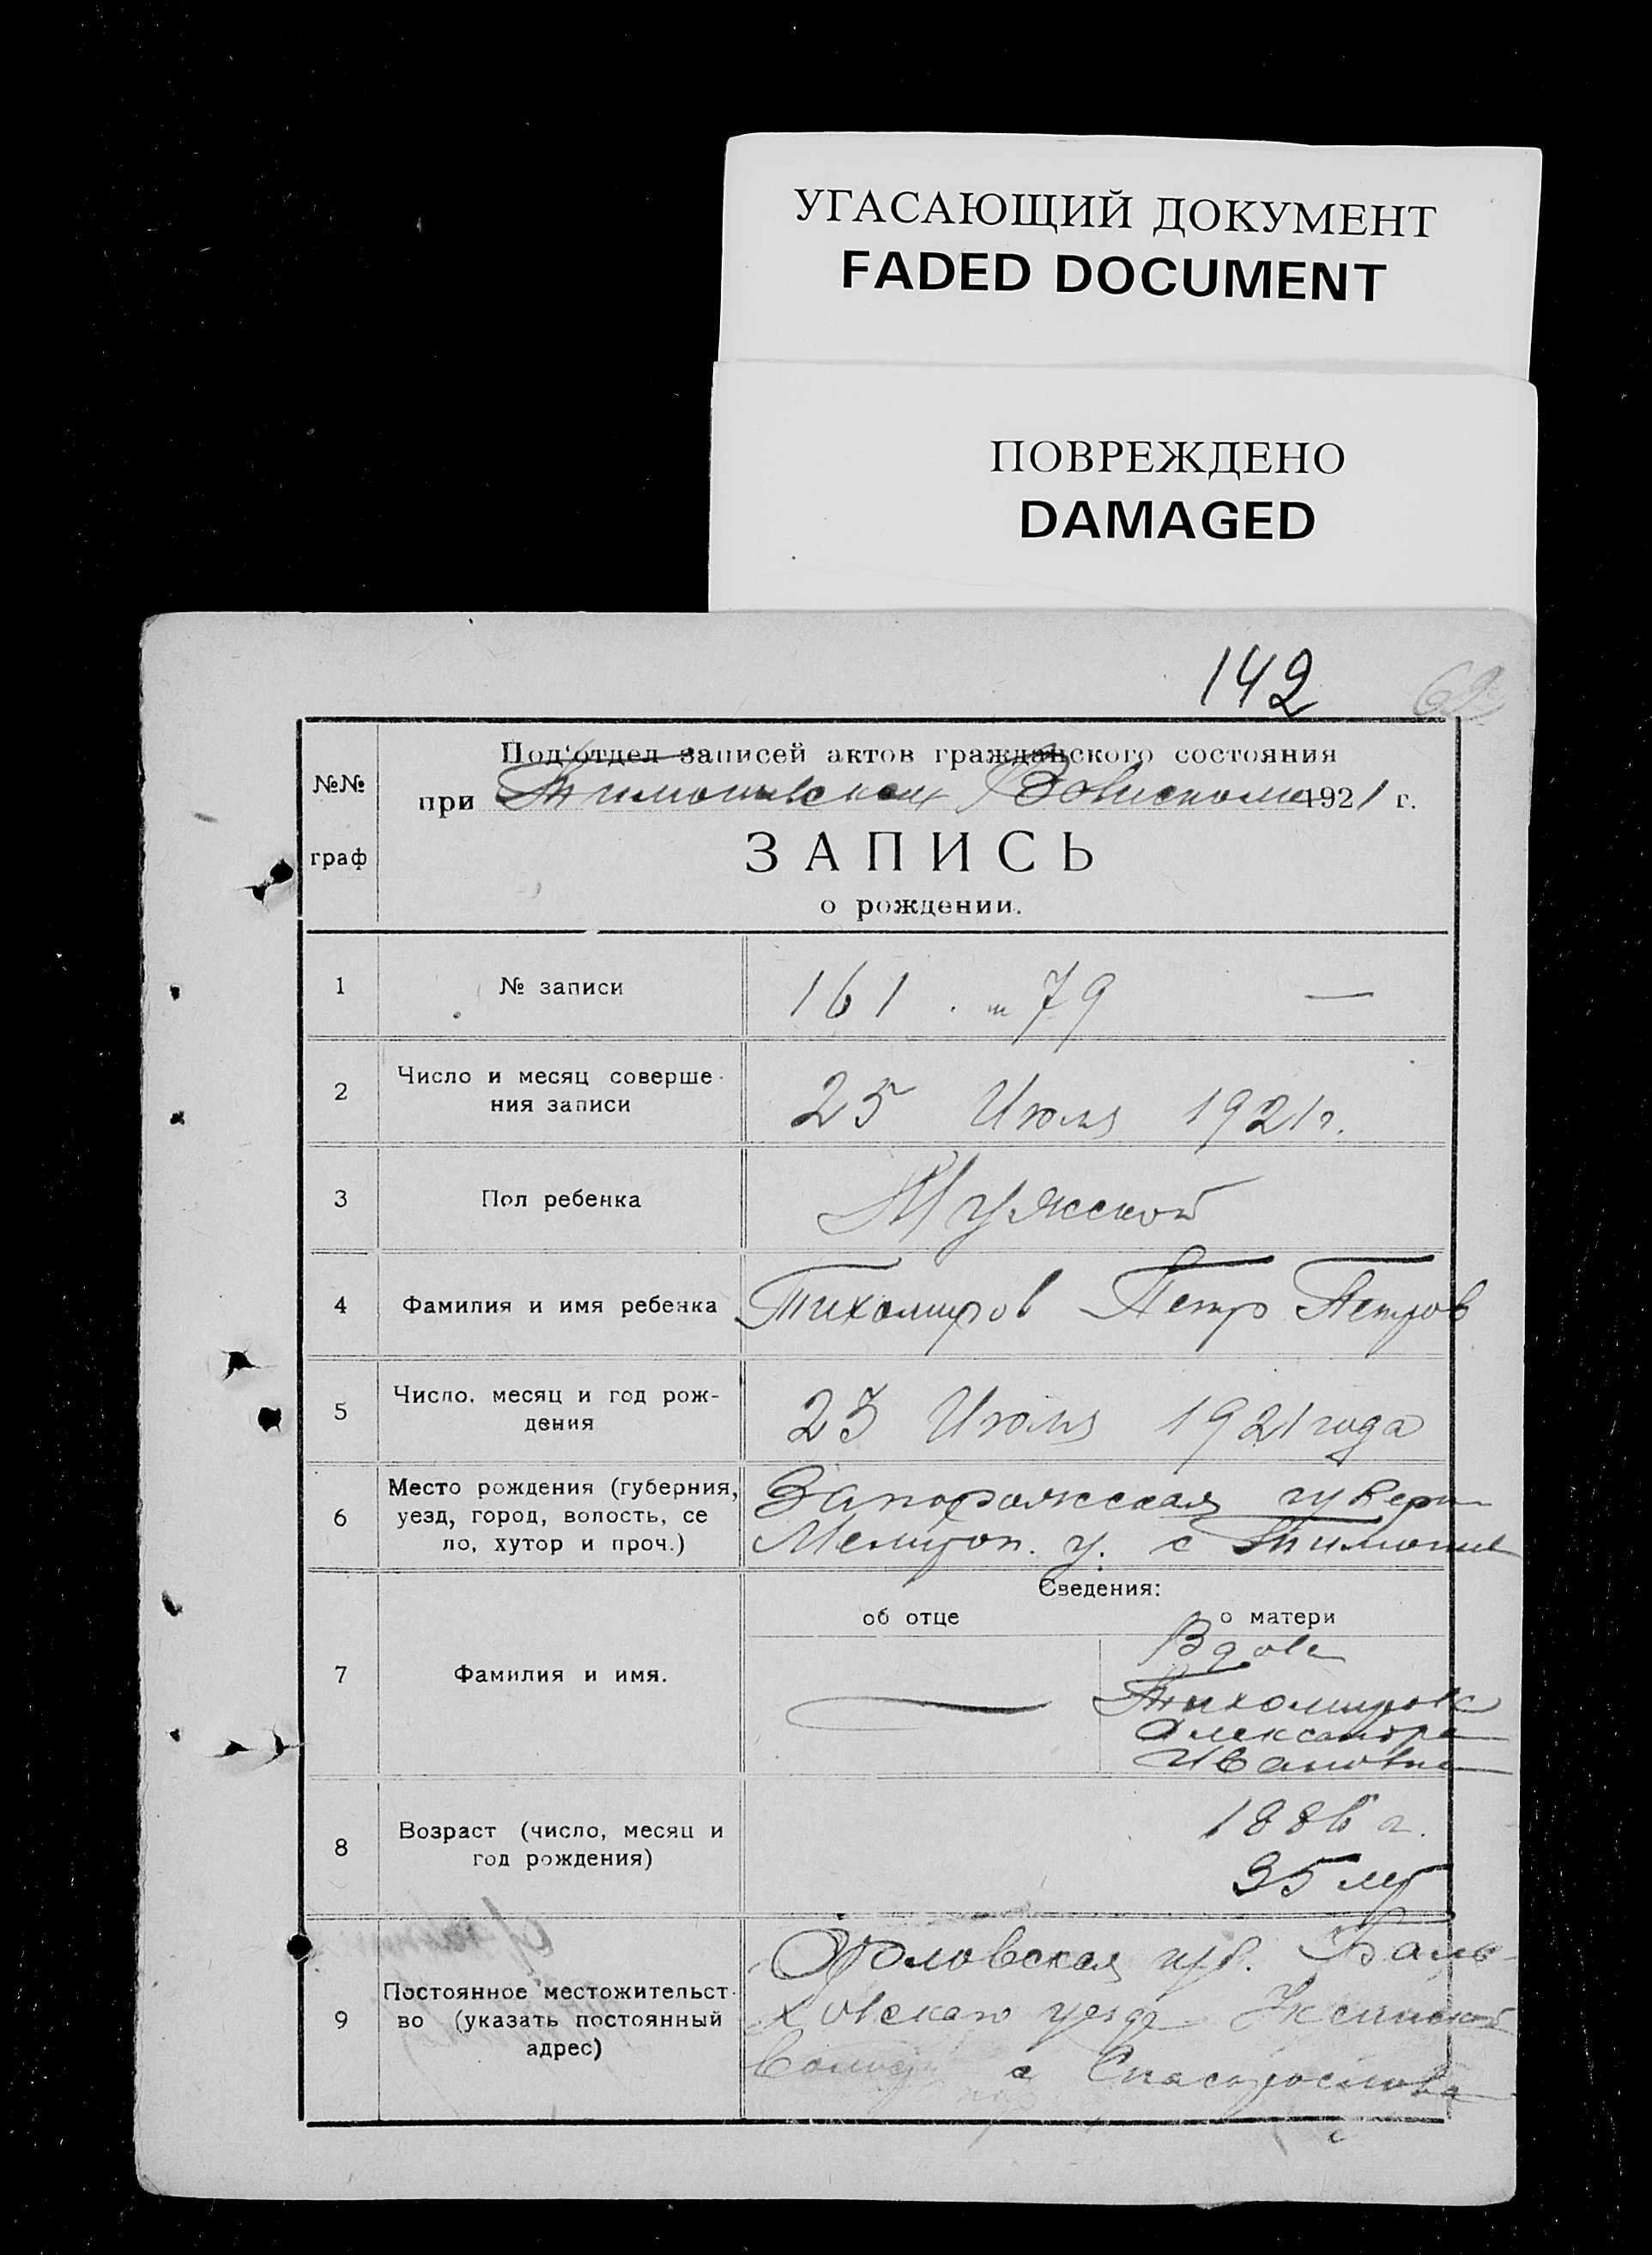 УГАСАЮЩИЙ ДОКУМЕНТ
FADED DOCUMENT
ПОВРЕЖДЕНО
DAMAGED
142
62
№№
граф
Под'отдел записей актов гражданского состояния
при 1921 г.
ЗАПИСЬ
о рождении.
1 № записи 161 79 —
2 Число и месяц соверше-
ния записи
25 Июля 1921 г.
3 Пол ребенка Мужской
4 Фамилия и имя ребенка Тихомиров Петр Петров
5 Число, месяц и год рож-
дения
23 Июля 1921 года
6 Место рождения (губерния,
уезд, город, волость, се
ло, хутор и проч.)
Запорожская губерн
Мелитоп. у. с Тимоше
Сведения:
об отце о матери
7 Фамилия и имя.
Вдова
Тихомирова
Александра
Ивановна
8 Возраст (число, месяц и
год рождения)
1886 г.
35 лет
9 Постоянное местожительст-
во (указать постоянный
адрес)
Орловская губ. Бол
ховскаго уезда
с